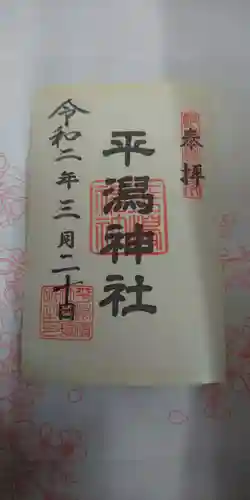 奉拝
平潟神社
令和二年三月二十日